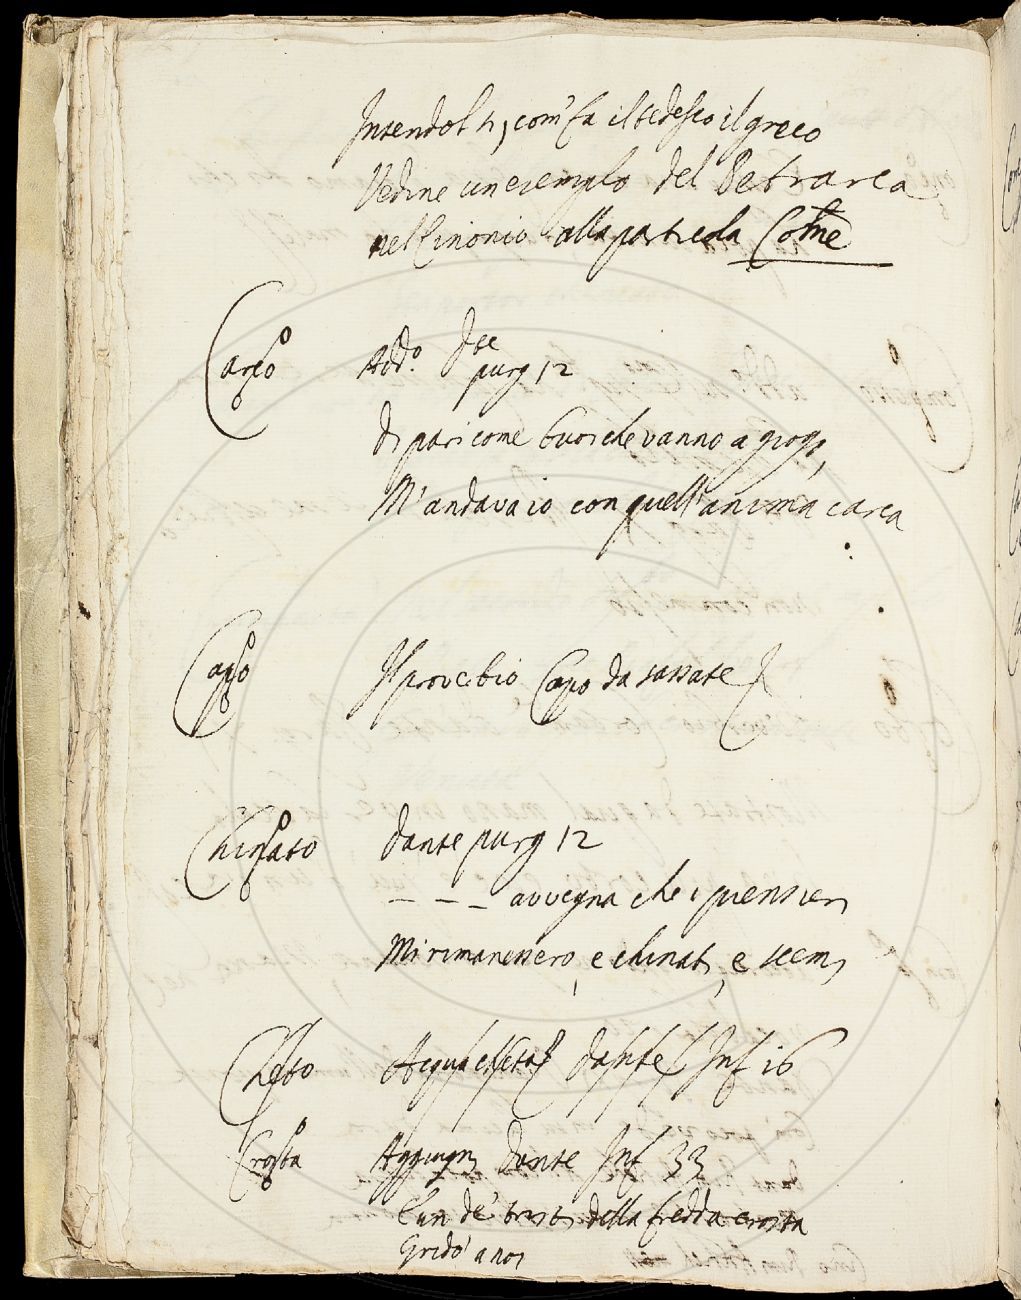 Intendol sì, com' fa il tedesco il greco
Vedine un esemplo del Petrarca
nel Cinonio alla particola Come
Carco Add.o Dte
purg 12
Di pari come buoi che vanno a giogo,
M'andava io con quell'anima carca
Capo Il proverbio Capo da sassate
Chinato Dante purg 12
_ _ _ avvegna che i pensieri
Mi rimanessero, e chinati, e scemi
Cheto Acqua cheta Dante Inf 16
Crosta Aggiugni Dante Inf 33
E un de' tristi della fredda crosta
Gridò a noi